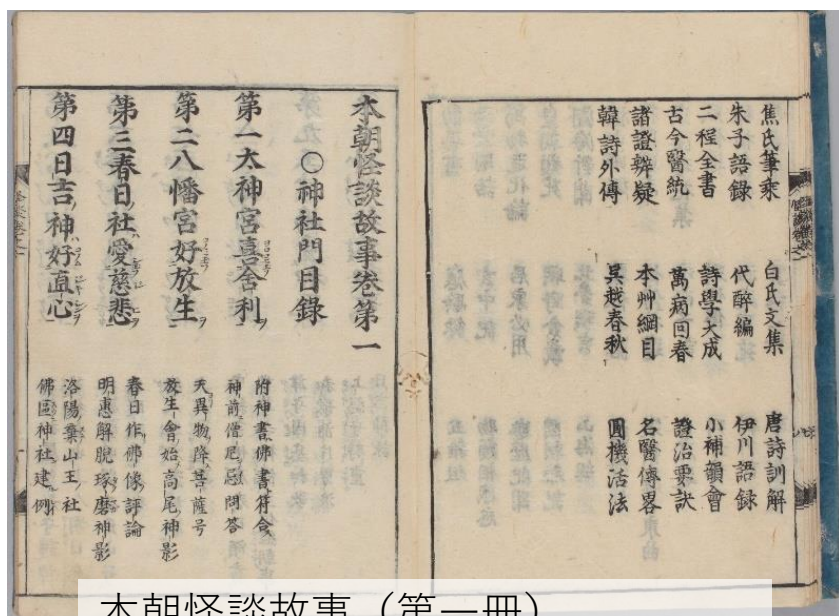 焦氏筆乘　白氏文集　唐詩訓解
朱子語錄　代醉編　伊川語錄
二程全書　詩學大成　小補韻會
古今醫統　萬病回春　證治要訣
諸證辨疑　本艸綱目　名醫傳畧
韓詩外傳　吳越春秋　圓機活法
本朝怪談故事卷第一
〇神社門目錄
第一太神宮喜舍利
附神書佛書符合
神前僧尼忌問答
第二八幡宮好放生
天異物降菩薩号
放生會始高尾神影
第三春日社愛慈悲
春日作佛像評論
明惠解脫琢磨神影
第四日吉神好直心
洛陽棄山王社
佛區神社建例
本朝怪談故事（第一冊）